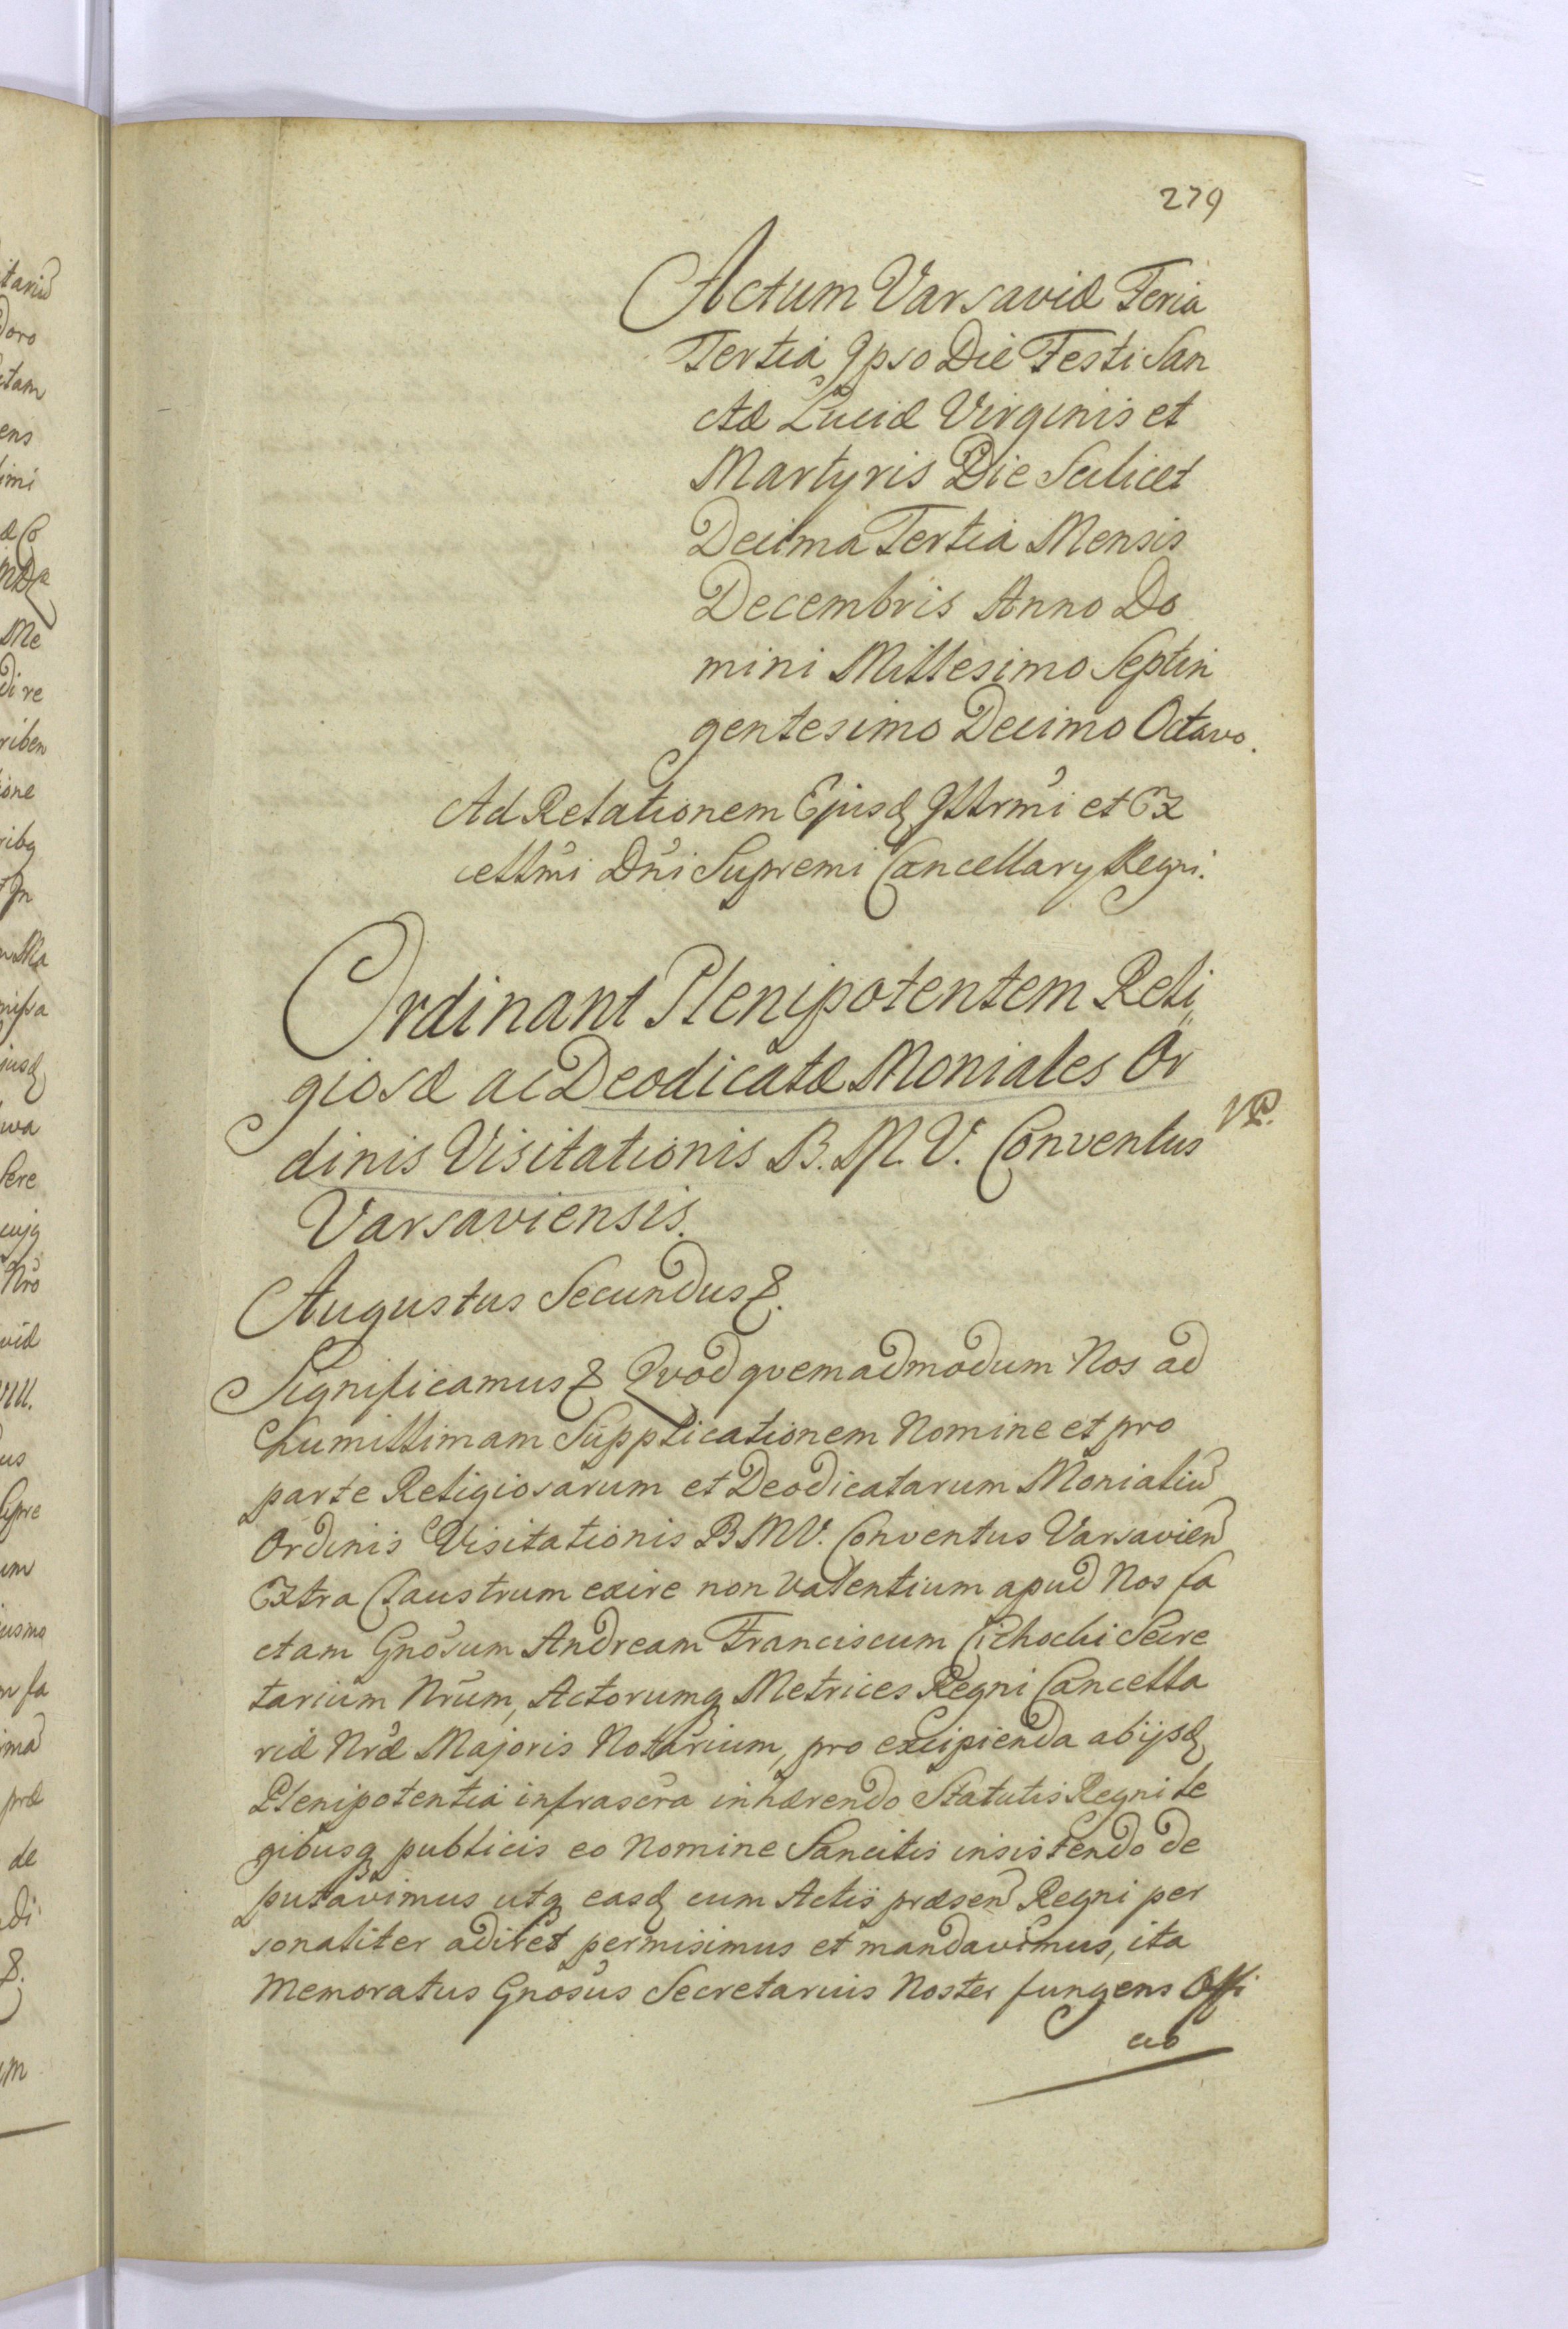 279
Actum Varsaviæ Feria
Tertia Ipso Die Festi San
ctæ Luciæ Virginis et
Martyris Die Scilicet
Decima Tertia Mensis
Decembris Anno Do
mini Millesimo Septin
gentesimo Decimo Octavo.
Ad Relationem Ejusd Illrmi et Ex
cellmi Dni Supremi Cancellarÿ Regni.
Ordinant Plenipotentem Reli,
giosæ ac Deodicatæ Moniales Or
dinis Visitationis B. M. V. Conventus
Varsaviensis.
Augustus Secundus &.
Significamus & Qvod qvemadmodum Nos ad
humillimam Supplicationem Nomine et pro
parte Religiosarum et Deodicatarum Monialiu
Ordinis Visitationis B M V. Conventus Varsavien
Extra Claustrum exire non valentium apud Nos fa
ctam Gnosum Andream Franciscum Cichocki Secre
tarium Nrum, Actorumq Metrices Regni Cancella
riæ Nræ Majoris Notarium, pro excipienda ab ijsd
Plenipotentia infrascra inhærendo Statutis Regni le
gibusq publicis eo Nomine Sancitis insistendo de
putavimus utq easd cum Actis præsen Regni per
sonaliter adiret permisimus et mandavimus, ita
Memoratus Gnosus Secretarius Noster fungens Offi
cio